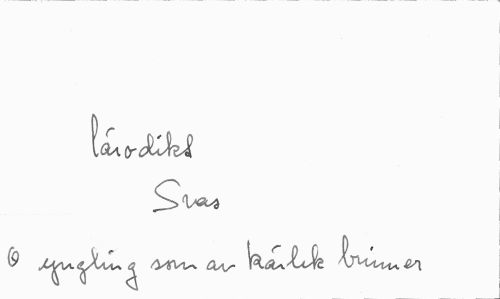 lärodikt
Svas
O yngling som av kärlek brinner